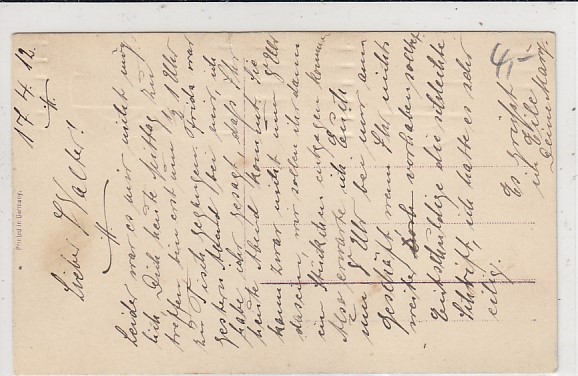 17.4.12.
Lieber Walter!
Leider war es mir nicht mög-
lich Dich heute Mittag zu
treffen bin erst um ½ 1 Uhr
zu Tisch gegangen. Frida war
gestern Abend bei mir, ich
habe ihr gesagt daß Ihr
heute Abend kommt. Sie
kann zwar nicht um 8 Uhr
da sein, wir sollen ihr dann
ein Stückchen entgegen kommen
Also erwarte ich Euch
um 8 Uhr bei mir am
Geschäft wenn Ihr nichts
weiter vorhaben solltet
Entschuldige die schlechte
Schrift, ich hatte es sehr
eilig.
Es grüßt
in Eile
Deine
Printed in Germany.